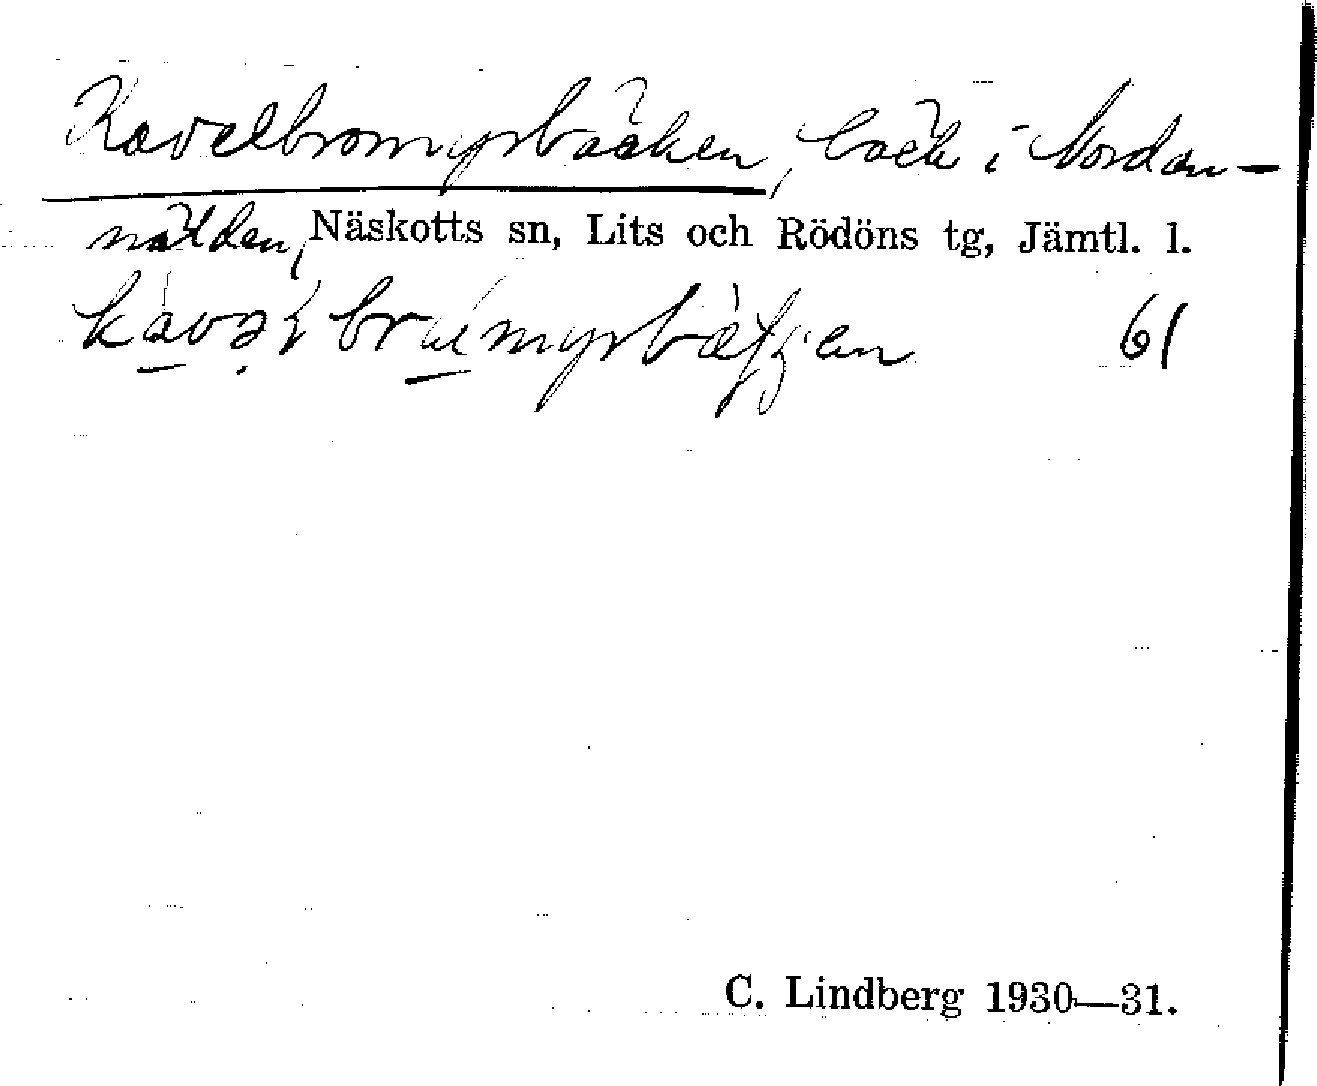 Kavelbromyrbäcken, bäck i Nordan-
nälden, Näskotts sn, Lits och Rödöns tg, Jämtl. l.
61
C. Lindberg 1930—31.